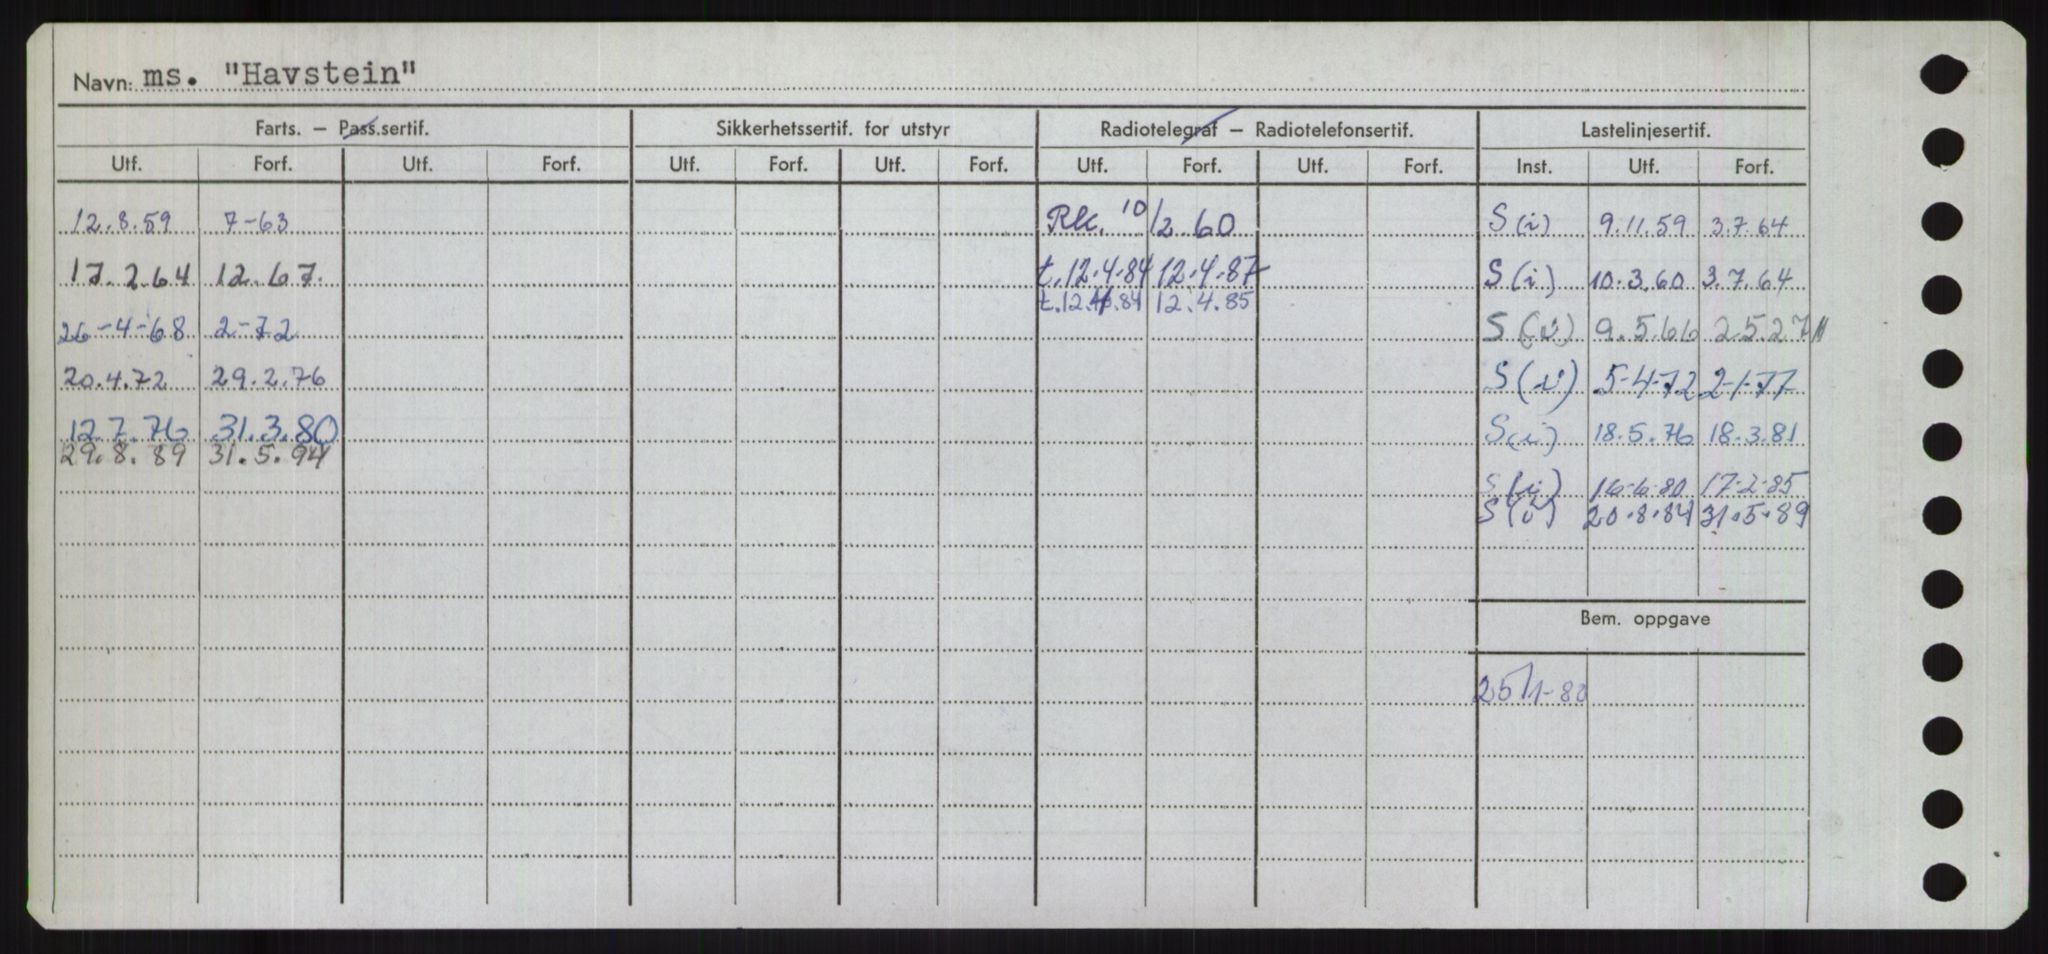 Navn: ms. "Havstein"
Farts. – Pass.sertif. Sikkerhetssertif. for utstyr Radiotelegraf – Radiotelefonsertif. Lastelinjesertif.
Utf. Forf. Utf. Forf. Utf. Forf. Utf. Forf. Utf. Forf. Utf. Forf. Inst. Utf. Forf.
12.8.59 7-63 Rk. 10/2 60 S(i) 9.11.59 3.7.64
17.2.64 12.67. t.12.4.84 12.4.87 S(i) 10.3.60 3.7.64
t.12.4.84 12.4.85
26-4-68 2-72 S(i) 9.5.66 2.5.27
20.4.72 29.2.76 S(i) 5-4-72 2-1-77
12.7.76 31.3.80 S(i) 18.5.76 18.3.81
29.8.89 31.5.94
S(i) 16-6-80 17-2-85
S(i) 20.8.84 31.5.89
Bem. oppgave
25/1-80